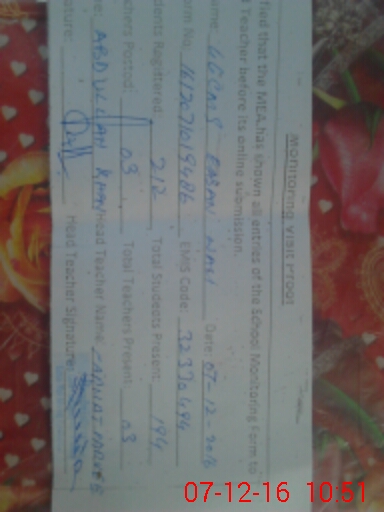 Monitoring Visit Proof
fied that the MEA has shown all entries of the School Monitoring Form to
Teacher before its online submission.
ame: GGCMS Date 07-12-2016
orm No. EMIS Code: 32370494
dents Registered: 212 Total Students Present: 194
chers Posted: 03 Total Teachers Present: 03
e: ABDULLAH KHAN Head Teacher Name:
ature: Head Teacher Signature:
07-12-16 10:51